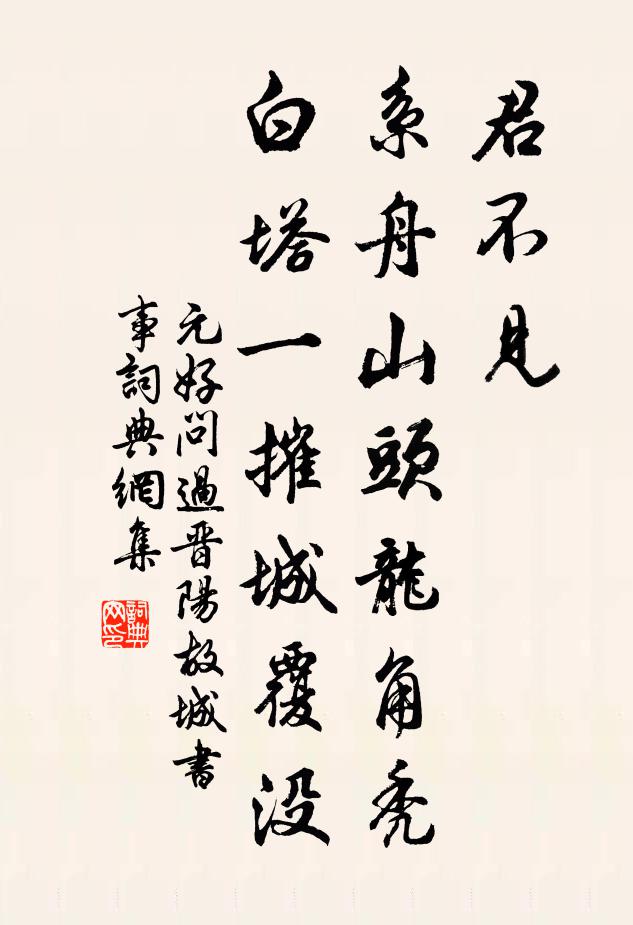 君不見
系舟山頭龍角禿
白塔一摧城覆没
元好問過晋陽故城書
事詞典網集
詞典网印